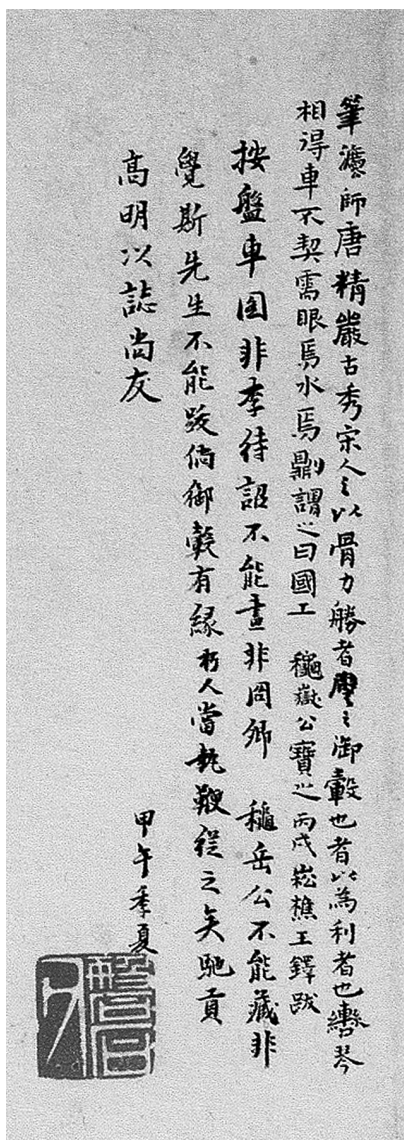 筆灋師唐精嚴古秀宋人之以骨力勝者之御轂也者以為利者也轡琴
相得車不契需眼焉水焉劚謂之曰國工 龝嶽公寶之丙戌崧樵王鐸跋
按盤車固非李待詔不能畫非罔卿 龝岳公不能藏非
覺斯先生不能跋倘御轂有緣朽人當執鞭從之矣馳貢
高明以誌尚友
甲午季夏